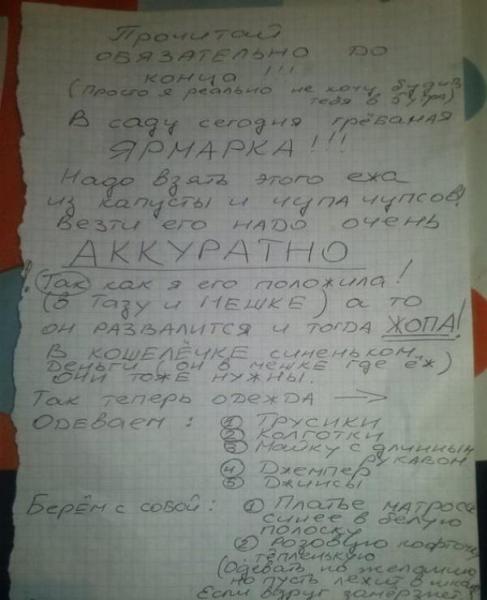 Прочитай
ОБЯЗАТЕЛЬНО до
конца !!!
(Просто я реально не хочу будить
тебя в 5 утра)
В саду сегодня грёбаная
ЯРМАРКА!!!
Надо взять этого ежа
из капусты и чупа чупсов!
Везти его надо очень
АККУРАТНО
! Так как я его положила!
(в тазу и мешке) а то
он развалится и тогда ЖОПА!
В кошелёчке синеньком
деньги (он в мешке где ёж)
они тоже нужны.
Так теперь одежда →
Одеваем: ① Трусики
② Колготки
③ Майку с длинным
рукавом
④ Джемпер
⑤ Джинсы
Берём с собой: ① Платье матроса
синее в белую
полоску
② Розовую кофточку
тёпленькую
(Одевать по желанию
но пусть лежит в
Если вдруг замёрзнет